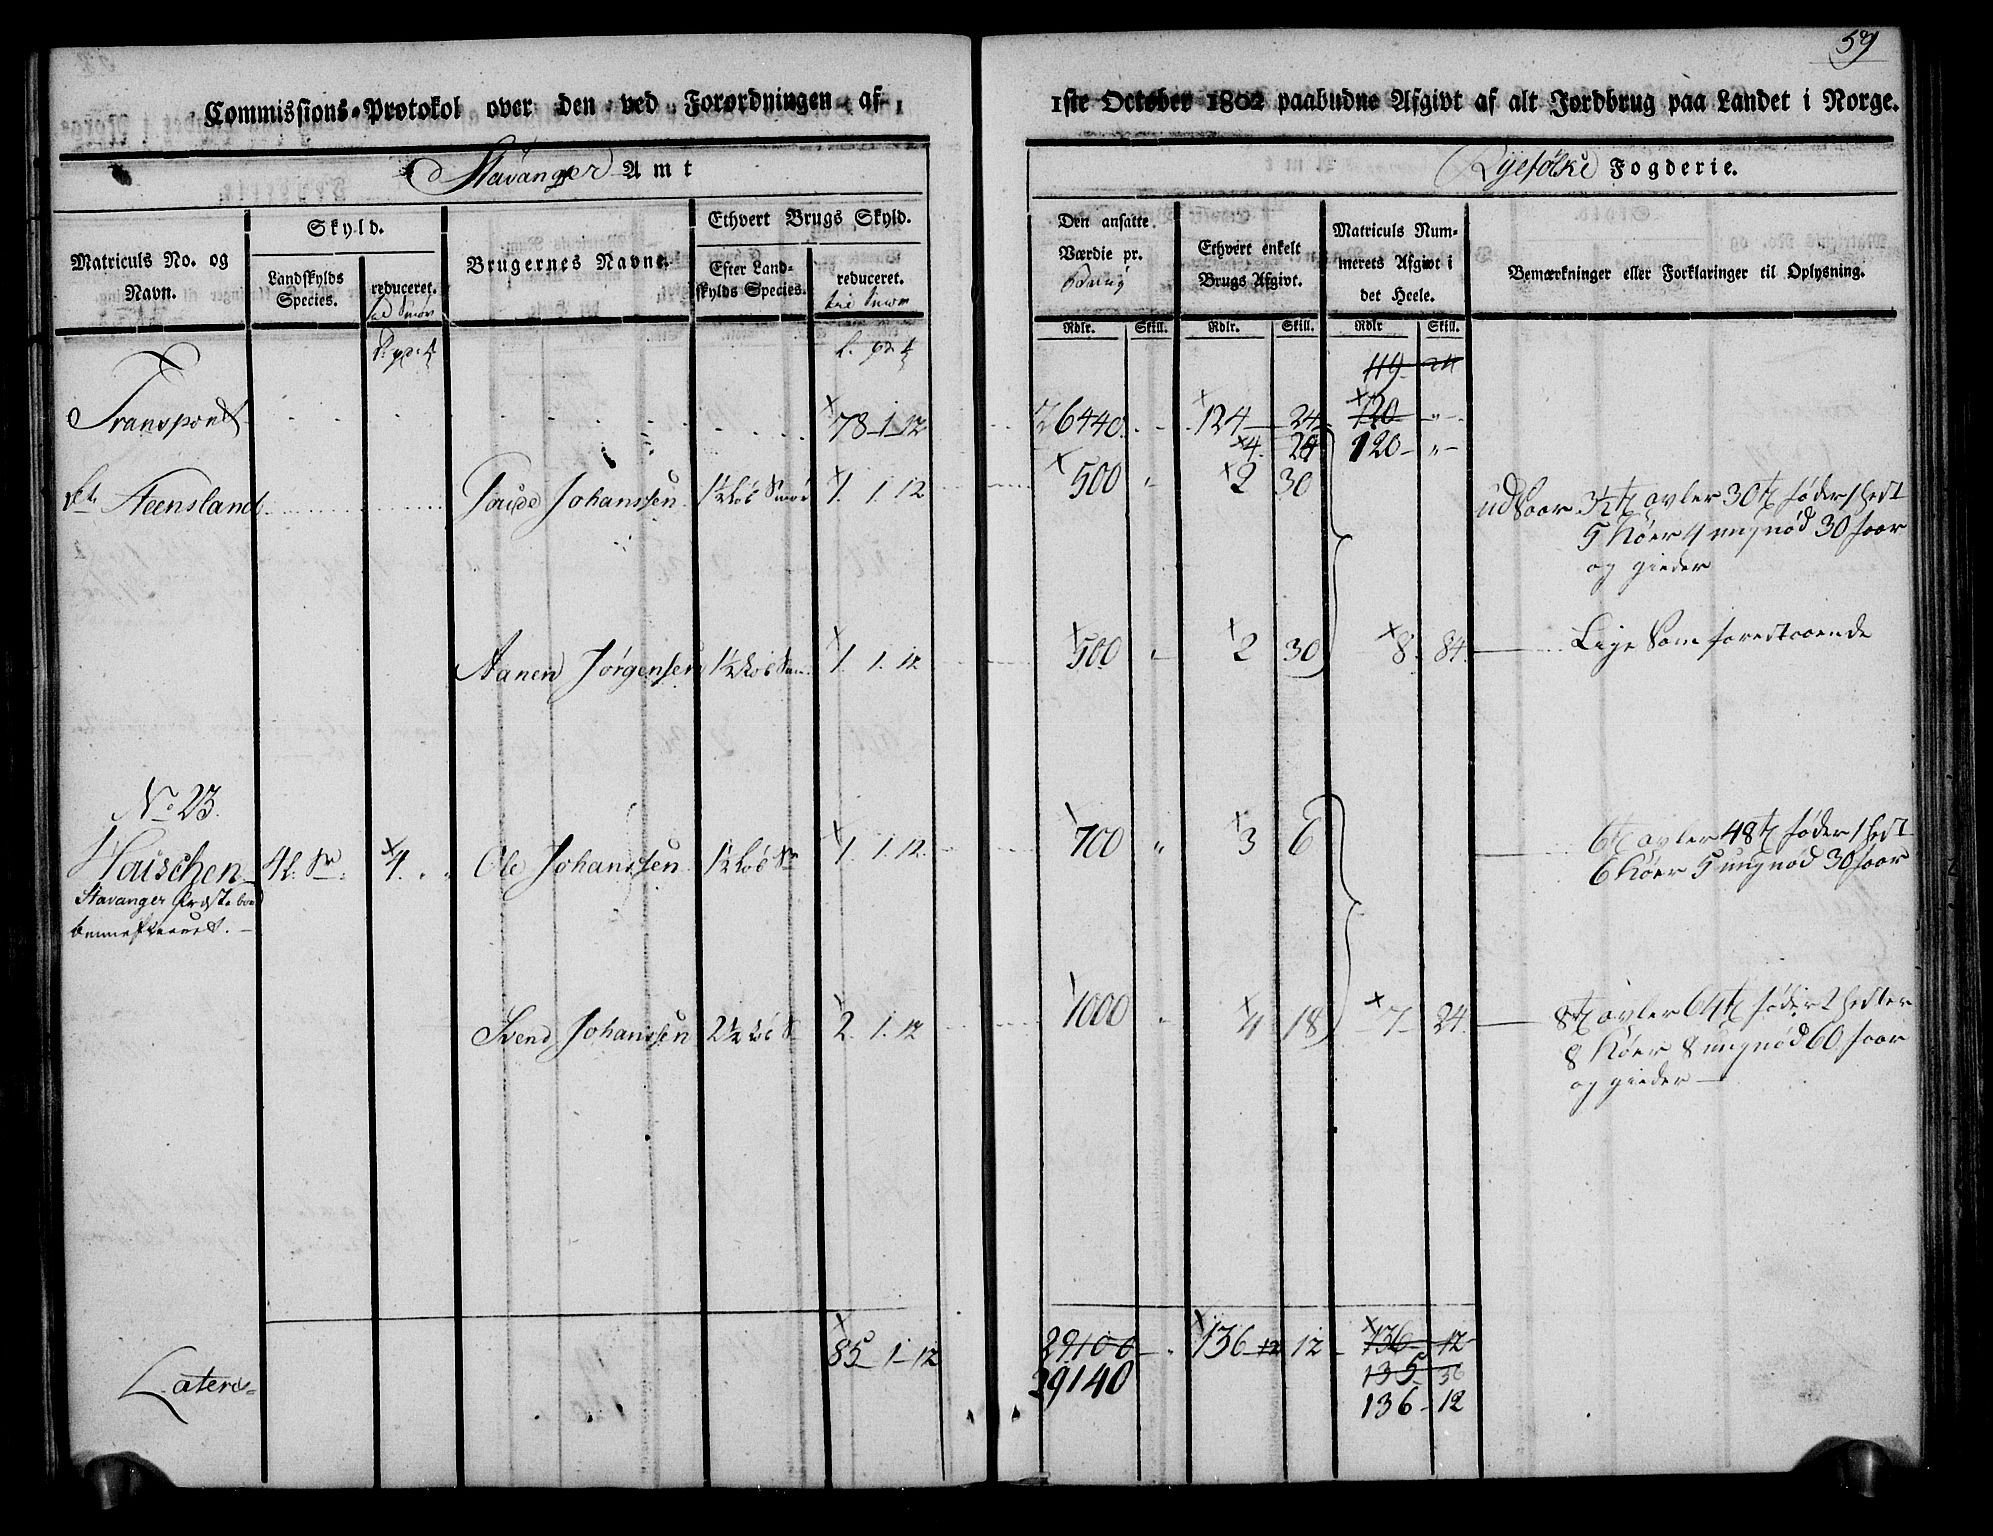 59
Commissions-Protokol over den ved Forordningen af 1ste October 1802 paabudne Afgivt af alt Jordbrug paa Landet i Norge.
Stavanger Amt
Ryefölke Fogderie.
Matriculs No. og Navn.
Skyld.
Landskylds Species.
reduceret.
Brugernes Navne.
Ethvert Brugs Skyld.
Efter Landskylds Species.
reduceret.
til Smør
Den ansatte Værdie pr.
Ethvert enkelt Brugs Afgivt.
Matriculs Nummerets Afgivt i det Heele.
Bemærkninger eller Forklaringer til Oplysning.
Rdlr. Skill. Rdlr. Skill. Rdlr Skill.
119 24
Transport 78-1-12 26440 124 24 120 "
4 24 120 "
Steensland Johanssen 1½ Løb Smør 1. 1. 12 500 " 2 30 udsaar 3½ t avler 30 t føder 1 hest
5 Køer 4 ungnød 30 faar
og gieder
Aanen Jörgensen 1½ Løb Sm. 1. 1. 12 500 " 2 30 8 84 Lige Som forestaaende
No 23.
Hauschen 4 l. Sm. 4 . " Ole Johanssen 1½ Løb Sm 1. 1. 12. 700 " 3 6 6 t avler 48 t føder 1 hest
6 Køer 5 ungnød 30 faar
Stavanger Præste bord
benificeret.
Svend Johanssen 2½ Løb S 2. 1. 12 1000 " 4 18 7 24 8 t avler 64 t føder 2 hester
8 Køer 8 ungnød 60 faar
og gieder
Latere 85-1-12 29100 136 12 12 136 12
29140 135 36
136-12